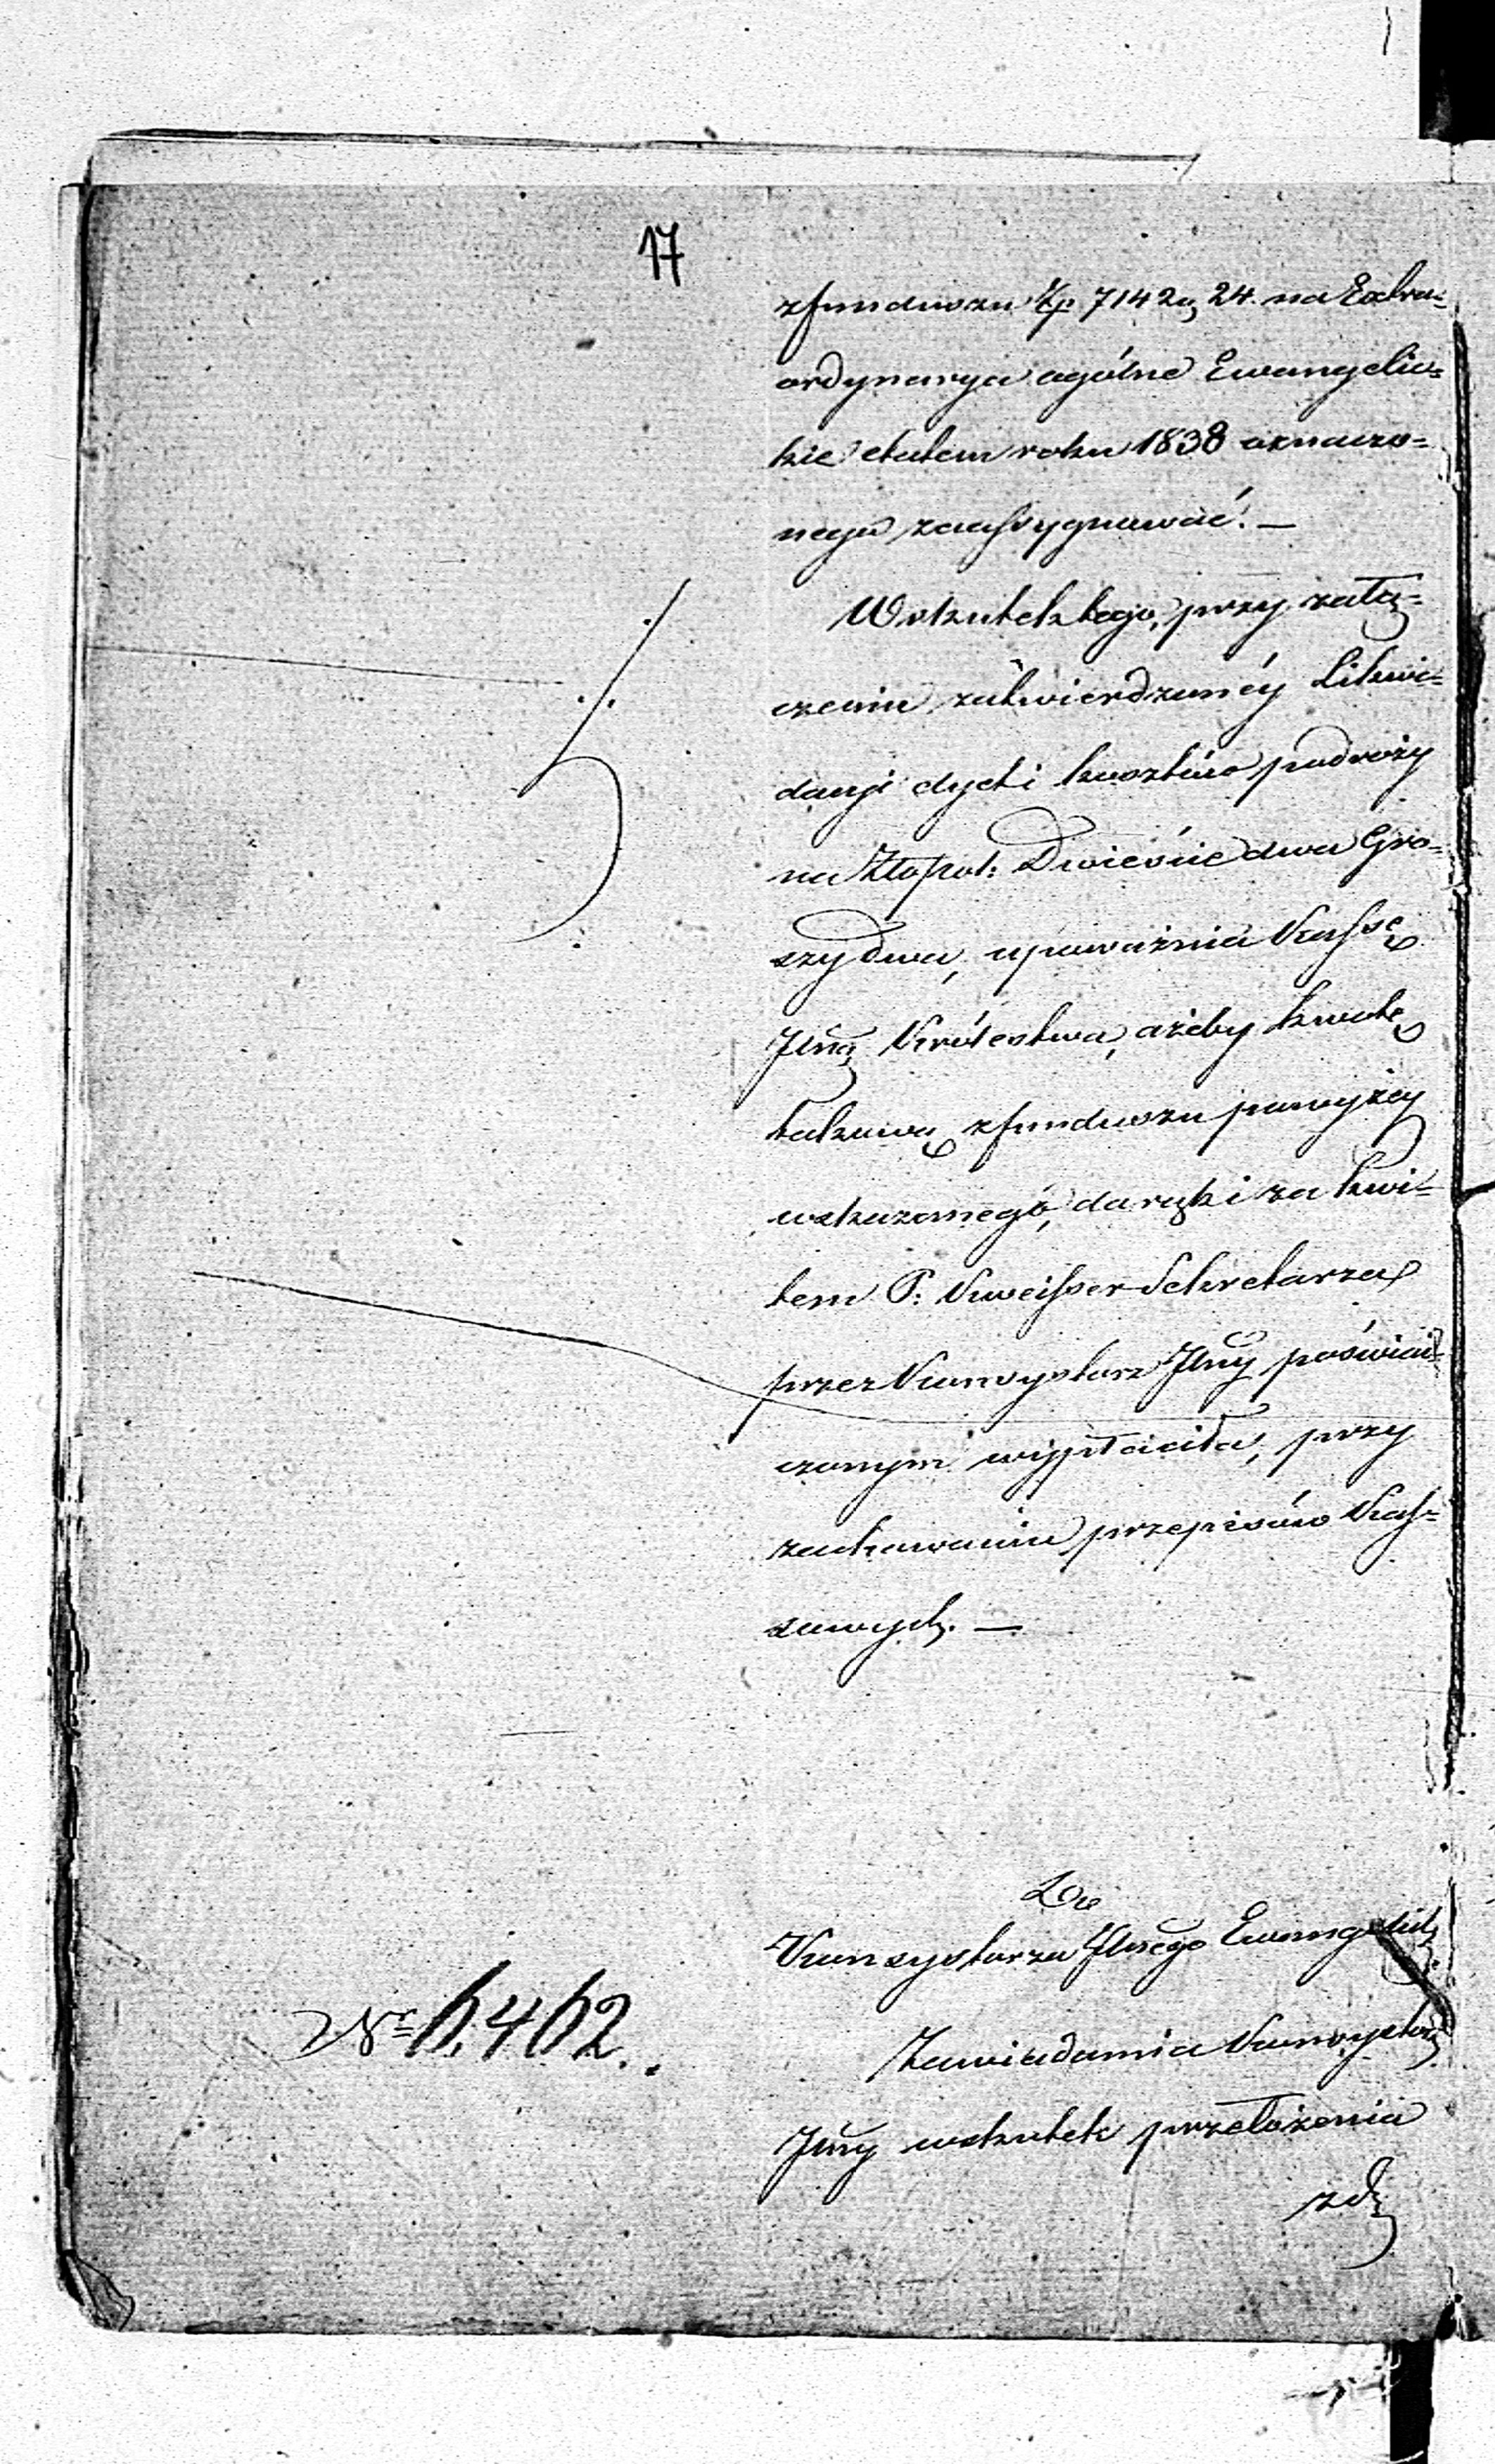 17
zfunduszu Złp. 7142 g, 24. na Extra=
ordynarya ogólne Ewangelic=
kie etatem roku 1838 oznaczo=
nego zaassygnować. —
Wskutek tego, przy załą=
czeniu zatwierdzonéy Likwi=
dacyi dyet i kosztów podroży
na Złopol: Dwieście dwa Gro=
szy dwa, upoważnia Kassę
Jlną Królestwa, ażeby kwotę
takową zfunduszu powyżey
wskazanego, do rąk i za kwi=
tem P: Kweisser Sekretarza
przez Konsystorz Jlny poświad=
czonym wypłaciła, przy
zachowaniu przepisów Kas=
sowych. —
Do
Konsystorza Jlnego Ewangelick
Nr 6,462.
Zawiadamia Konsystorz
Jlny wskutek przełożenia
zd